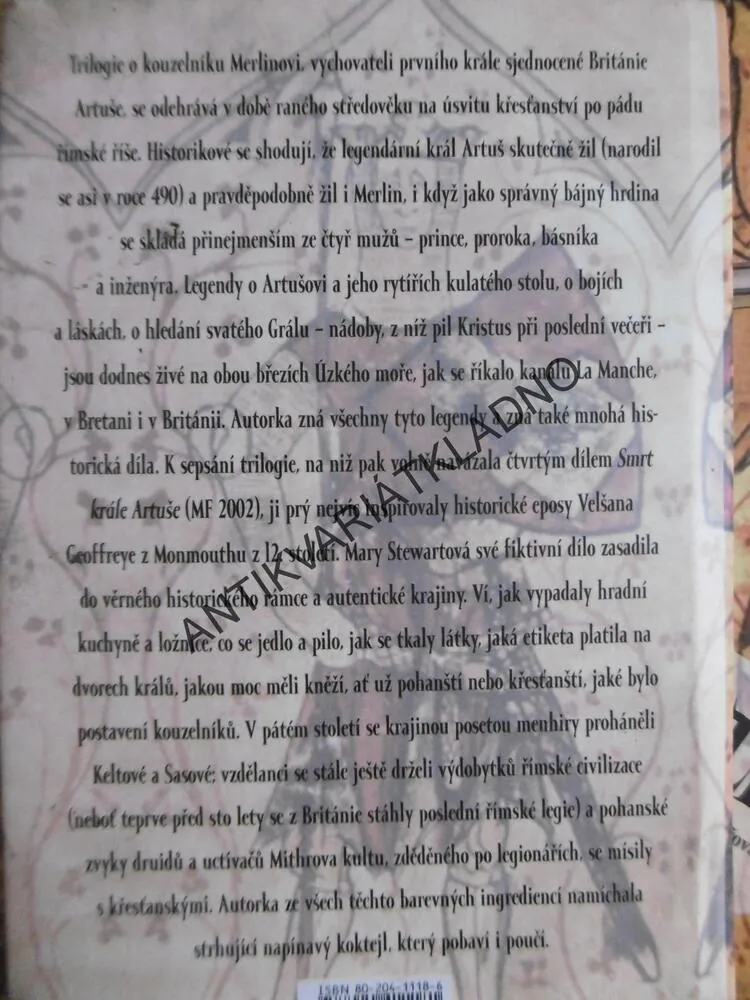 Trilogie o kouzelníku Merlinovi, vychovateli prvního krále sjednocené Británie
Artuše, se odehrává v době raného středověku na úsvitu křesťanství po pádu
římské říše. Historikové se shodují, že legendární král Artuš skutečně žil (narodil
se asi v roce 490) a pravděpodobně žil i Merlin, i když jako správný bájný hrdina
se skládá přinejmenším ze čtyř mužů – prince, proroka, básníka
- a inženýra. Legendy o Artušovi a jeho rytířích kulatého stolu, o bojích
a láskách, o hledání svatého Grálu – nádoby, z níž pil Kristus při poslední večeři –
jsou dodnes živé na obou březích Úzkého moře, jak se říkalo kanálu La Manche,
v Bretani i v Británii. Autorka zná všechny tyto legendy a zná také mnohá his-
torická díla. K sepsání trilogie, na niž pak volně navázala čtvrtým dílem Smrt
krále Artuše (MF 2002), ji prý nejvíc inspirovaly historické eposy Velšana
Geoffreye z Monmouthu z 12. století. Mary Stewartová své fiktivní dílo zasadila
do věrného historického rámce a autentické krajiny. Ví, jak vypadaly hradní
kuchyně a ložnice, co se jedlo a pilo, jak se tkaly látky, jaká etiketa platila na
dvorech králů, jakou moc měli kněží, ať už pohanští nebo křesťanští, jaké bylo
postavení kouzelníků. V pátém století se krajinou posetou menhiry proháněli
Keltové a Sasové; vzdělanci se stále ještě drželi výdobytků římské civilizace
(neboť teprve před sto lety se z Británie stáhly poslední římské legie) a pohanské
zvyky druidů a uctívačů Mithrova kultu, zděděného po legionářích, se mísily
s křesťanskými. Autorka ze všech těchto barevných ingrediencí namíchala
strhující napínavý koktejl, který pobaví i poučí.
ANTIKVARIÁTKLADNO
ISBN 80-204-1118-6